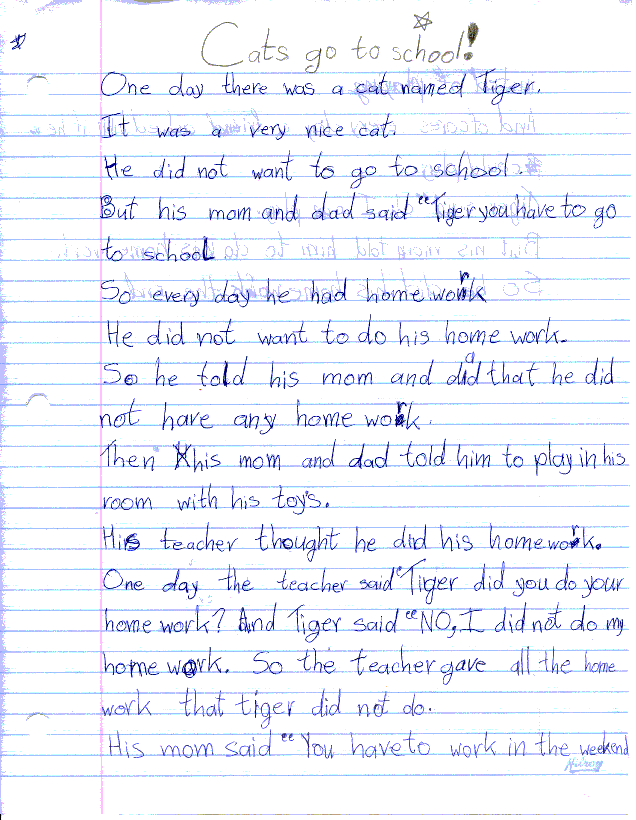 Cats go to school!
One day there was a cat named Tiger.
It was a very nice cat.
He did not want to go to school.
But his mom and dad said "Tiger you have to go
to school
So every day he had home work
He did not want to do his home work.
So he told his mom and dad that he did
not have any home work.
Then his mom and dad told him to play in his
room with his toy's.
His teacher thought he did his home work.
One day the teacher said "Tiger did you do your
home work? And Tiger said "NO, I did not do my
home work. So the teacher gave all the home
work that tiger did not do.
His mom said "You have to work in the weekend